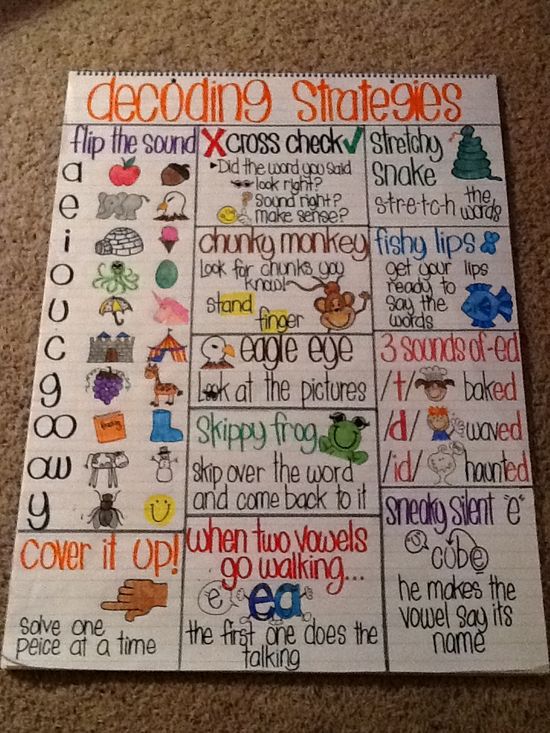 decoding strategies
flip the sound
a
e
i
o
u
c
g
oo
ow
y
X cross check ✓
Did the word you said
look right?
sound right?
make sense?
stretchy
snake
s-t-r-e-t-c-h the
words
chunky monkey
look for chunks you
know!
stand
finger
fishy lips
get your lips
ready to
say the
words
eagle eye
Look at the pictures
3 sounds of -ed
/t/ baked
/d/ waved
/id/ haunted
skippy frog
skip over the word
and come back to it
sneaky silent "e"
cube
he makes the
vowel say its
name
cover it up!
solve one
peice at a time
when two vowels
go walking...
e ea
the first one does the
talking